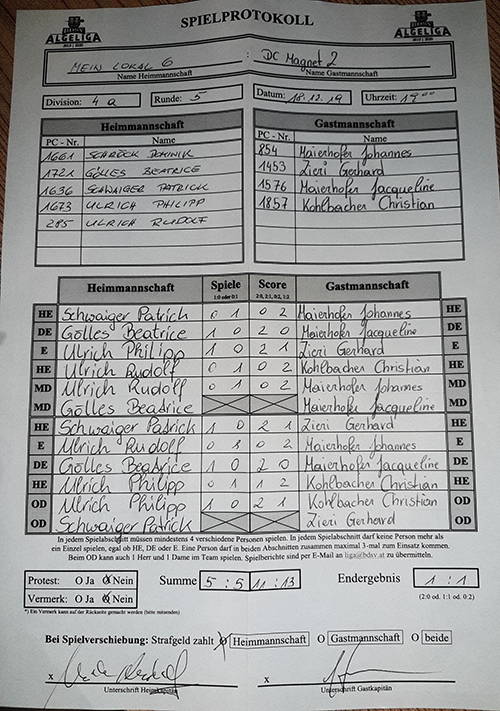 SPIELPROTOKOLL
ALGELIGA
ALGELIGA
MEIN LOKAL 6 : DC Magnet 2
Name Heimmannschaft Name Gastmannschaft
Division: 4 a Runde: 5 Datum: 18.12.19 Uhrzeit: 19 00
Heimmannschaft Gastmannschaft
PC - Nr. Name PC - Nr. Name
1661 SCHRÖCK DOMINIK 854 Maierhofer Johannes
1721 GÖLLES BEATRICE 1453 Zieri Gerhard
1636 SCHWAIGER PATRICK 1576 Maierhofer Jacqueline
1673 ULRICH PHILIPP 1857 Kohlbacher Christian
285 ULRICH RUDOLF
Heimmannschaft Spiele Score Gastmannschaft
1:0 oder 0:1 2:0, 2:1, 0:2, 1:2
HE Schwaiger Patrick 0 1 0 2 Maierhofer Johannes HE
DE Gölles Beatrice 1 0 2 0 Maierhofer Jacqueline DE
E Ulrich Philipp 1 0 2 1 Zieri Gerhard E
HE Ulrich Rudolf 0 1 0 2 Kohlbacher Christian HE
MD Ulrich Rudolf 0 1 0 2 Maierhofer Johannes MD
MD Gölles Beatrice Maierhofer Jacqueline MD
HE Schwaiger Patrick 1 0 2 1 Zieri Gerhard HE
E Ulrich Rudolf 0 1 0 2 Maierhofer Johannes E
DE Gölles Beatrice 1 0 2 0 Maierhofer Jacqueline DE
HE Ulrich Philipp 0 1 1 2 Kohlbacher Christian HE
OD Ulrich Philipp 1 0 2 1 Kohlbacher Christian OD
OD Schwaiger Patrick Zieri Gerhard OD
In jedem Spielabschnitt müssen mindestens 4 verschiedene Personen spielen. In jedem Spielabschnitt darf keine Person mehr als
ein Einzel spielen, egal ob HE, DE oder E. Eine Person darf in beiden Abschnitten zusammen maximal 3-mal zum Einsatz kommen.
Beim OD kann auch 1 Herr und 1 Dame im Team spielen. Spielberichte sind per E-Mail an liga@bdsv.at zu übermitteln.
Protest: O Ja O Nein Summe 5 : 5 11 : 13 Endergebnis 1 : 1
Vermerk: O Ja O Nein (2:0 od. 1:1 od. 0:2)
*) Ein Vermerk kann auf der Rückseite gemacht werden (bitte mitsenden)
Bei Spielverschiebung: Strafgeld zahlt O Heimmannschaft O Gastmannschaft O beide
x x
Unterschrift Heimkapitän Unterschrift Gastkapitän